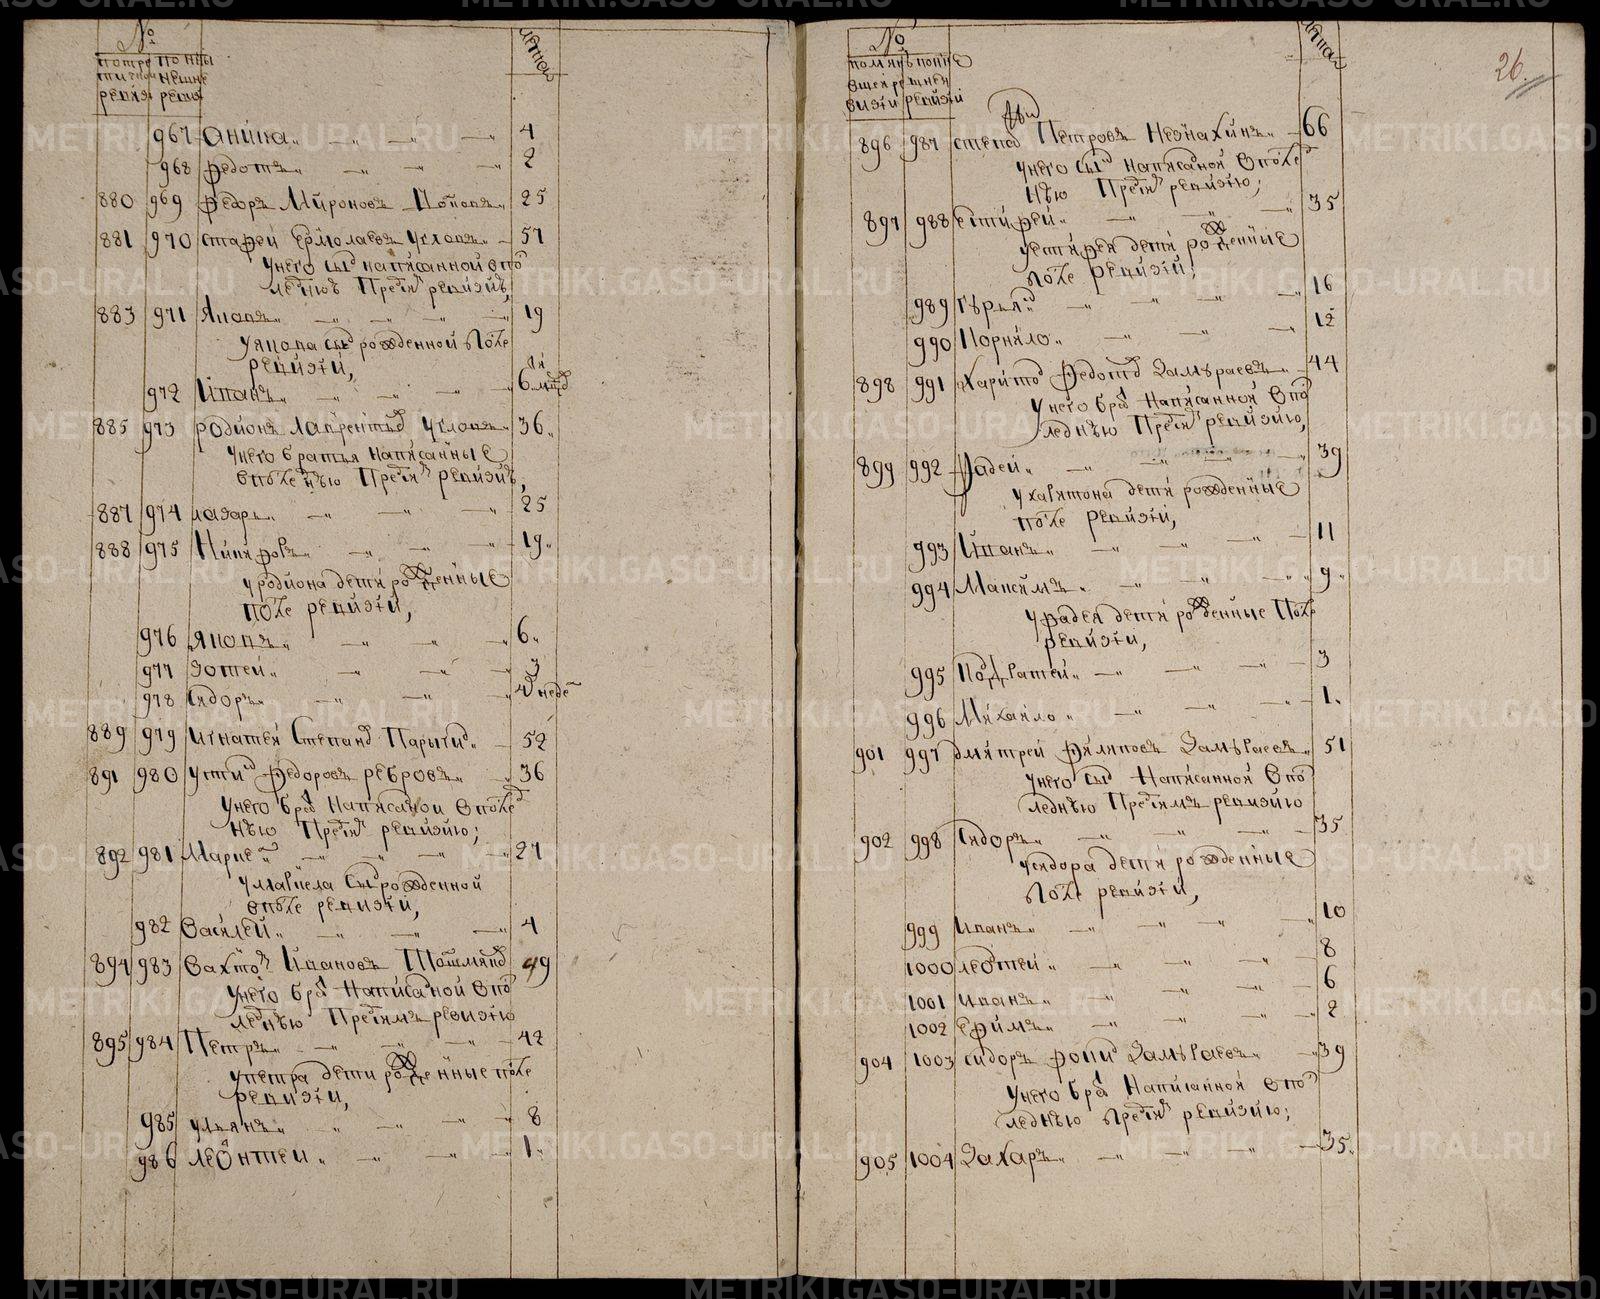 №
по тре по ны
тичной нешне
ревизи реви
летам
967 Аника 4
968 Федотъ 2
880 969 Федоръ Мироновъ Поповъ 25
881 970 Старѣй Ермолаевъ Угловъ 57
У него сы написанной в по
леднюю Претич ревизию,
883 971 Яковъ 19
У якова сы рожденной после
ревизии,
972 Иванъ 6
885 973 Родионъ Лаврентьев Угловъ 36
У него братья написанные
в после нюю Претич ревизию,
887 974 лазарь 25
888 975 Никифоръ 19
У родиона дети рожденные
после ревизии,
976 Яковъ 6
977 Зотей 3
978 Сидоръ 4 неде
889 979 Игнатей Степано Парыги 52
891 980 Усти Федоровъ ребровъ 36
У него бра Написаной в послед
нюю Претич ревизию;
892 981 Марке 27
У маркела сы рожденной
в после ревизии,
982 Василей 4
894 983 Вахто Ивановъ Тошмяко 49
У него бра Написаной в по
леднюю Претичмъ ревизию
895 984 Петръ 42
У петра дети рожденные после
ревизии,
985 ульянъ 8
986 леонтеи 1
№
по минъ по ныне
вшей ре шней
визии ревизии
летам
26.
896 987 степа Петровъ Незнахинъ 66
У него сы написаной в послед
нюю Претич ревизию;
897 988 Естифей 35
У естифея дети рожденные
После ревизии;
989 Гурья 16
990 Корнило 12
898 991 Харито Федото Замураевъ 44
У него бра Написанной в по
леднюю Претич ревизию,
899 992 Фадей 39
У харитона дети рожденные
после ревизии,
993 Иванъ 11
994 Максимъ 9
У фадея дети рожденные После
ревизии,
995 Кодратей 3
996 Михайло 1
901 997 дмитрей Филиповъ Замураевъ 51
У него сы Написанной в по
леднюю Претичмъ ревизию
902 998 Сидоръ 35
У сидора дети рожденные
После ревизии,
999 Иванъ 10
1000 леотей 8
1001 Иванъ 6
1002 Ефимъ 2
904 1003 сидоръ фоки Замураевъ 39
У него бра Написанной в по
леднюю Претич ревизию;
905 1004 Захаръ 35
METRIKI.GASO-URAL.RU